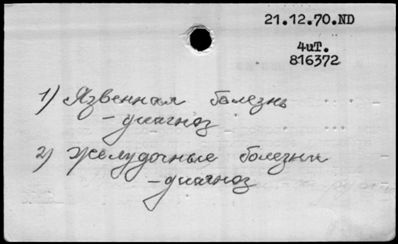 21.12.70.ND
4иT.
816372
1) Язвенная болезнь
- диагноз
2) Желудочные болезни
- диагноз